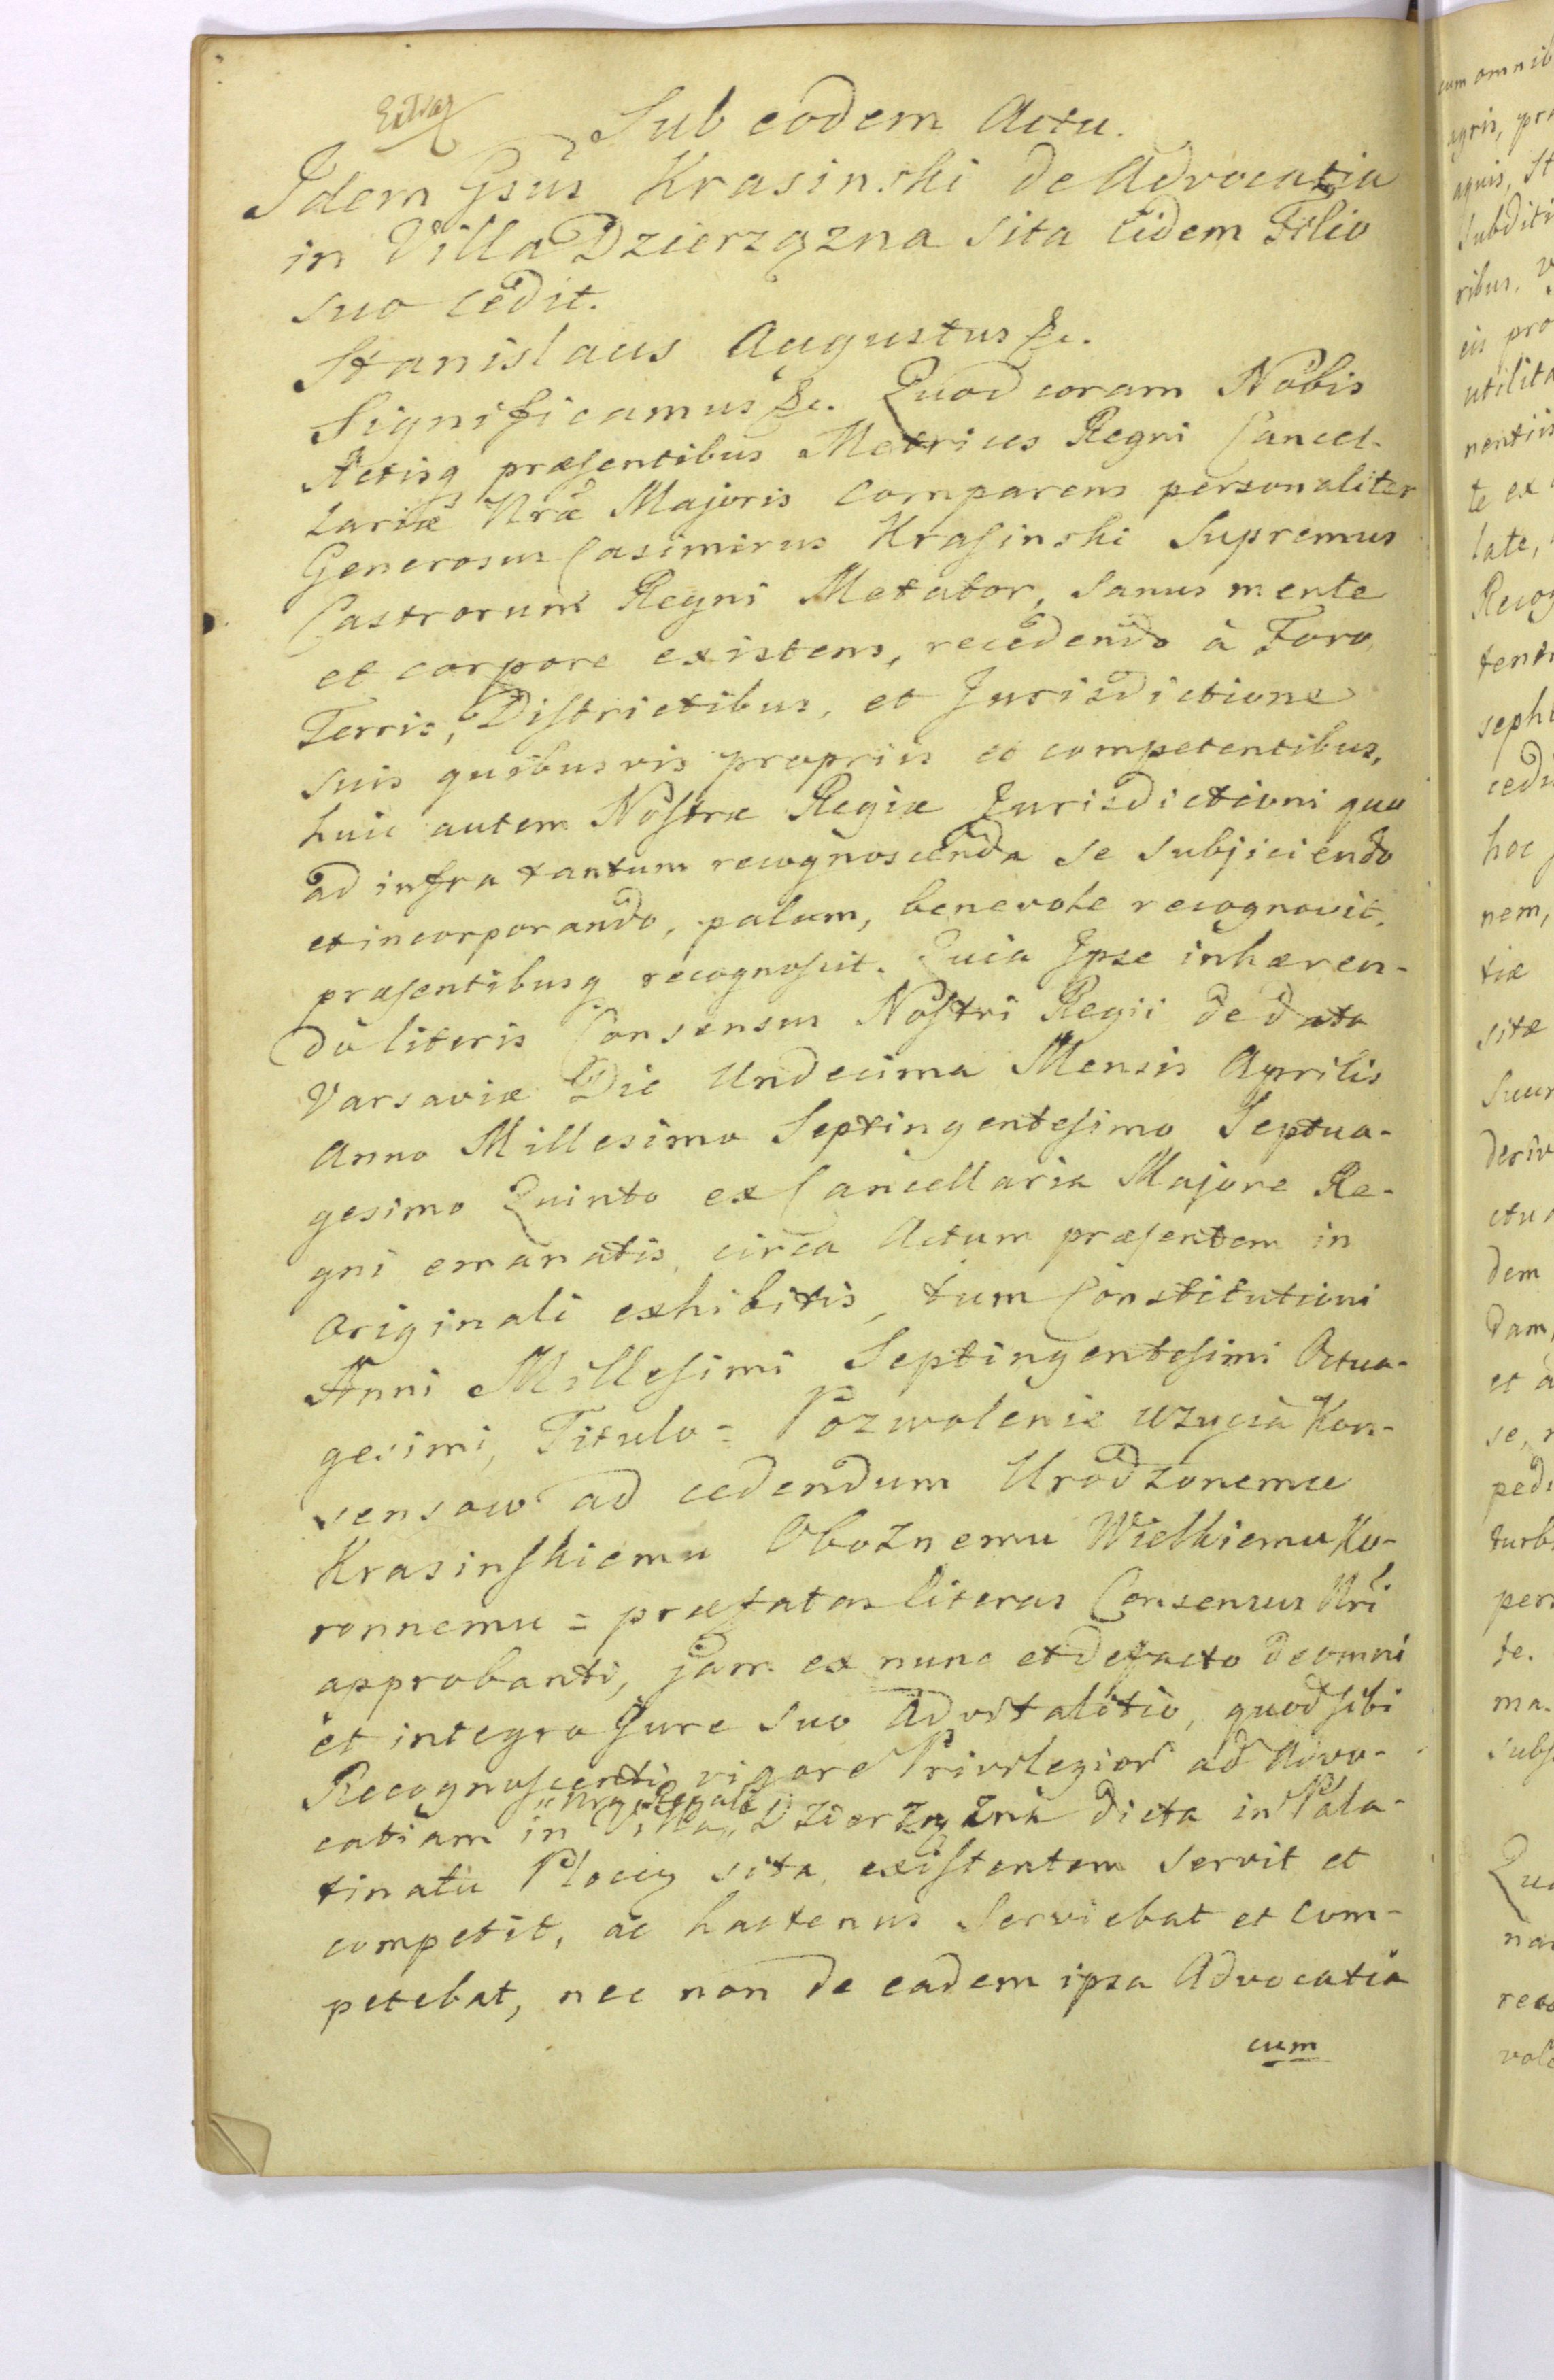 Sub eodem Actu.
Idem Gsus Krasinski de Advocatia
in Villa Dzierzązna sita Eidem Filio
suo cedit.
Stanislaus Augustus &c.
Significamus &c. Quod coram Nobis
Actisq præsentibus Metrices Regni Cancel-
lariæ Nræ Majoris comparens personaliter
Generosus Casimirus Krasinski Supremus
Castrorum Regni Metator, sanus mente
et corpore existens, recedendo à Foro,
Terris, Districtibus, et Jurisdictione
suis quibusvis propriis et competentibus,
huic autem Nostræ Regiæ Jurisdictioni quo
ad infra tantum recognoscenda se subjiciendo
et incorporando, palam, benevole recognovit,
præsentibusq recognoscit. Quia Ipse inhæren-
do literis Consensus Nostri Regii de data
Varsaviæ Die Undecima Mensis Aprilis
Anno Millesimo Septingentesimo Septua-
gesimo Quinto ex Cancellaria Majore Re-
gni emanatis, circa Actum præsentem in
Originali exhibitis, tum Constitutioni
Anni Millesimi Septingentesimi Octua-
gesimi, Titulo = Pozwolenie uzycia Kon-
sensow ad cedendum Urodzonemu
Krasinskiemu Oboznemu Wielkiemu Ko-
ronnemu = præfatas literas Consensus Nri
approbanti, jam ex nunc et de facto de omni
et integro Jure suo Advitalitio, quod sibi
Recognoscenti vigore Privilegior ad Advo-
catiam in Villa „Nra Regali„ Dzierzązna dicta in Pala-
tinatu Plocen sita, existentem servit et
competit, ac hactenus serviebat et com-
petebat, nec non de eadem ipsa Advocatia
cum
cum omnib
agris, pr
aquis, St
Subditi
ribus, v
eis pro
utilita
nentiis
te ex
late,
Recog
sephi
cedi
hoc
nem,
tiæ
sitæ
Suum
deriv
ctu
dem
dam,
et a
se, r
pedi
turb
pers
te.
ma.
subs
Quo
na
reco
vole